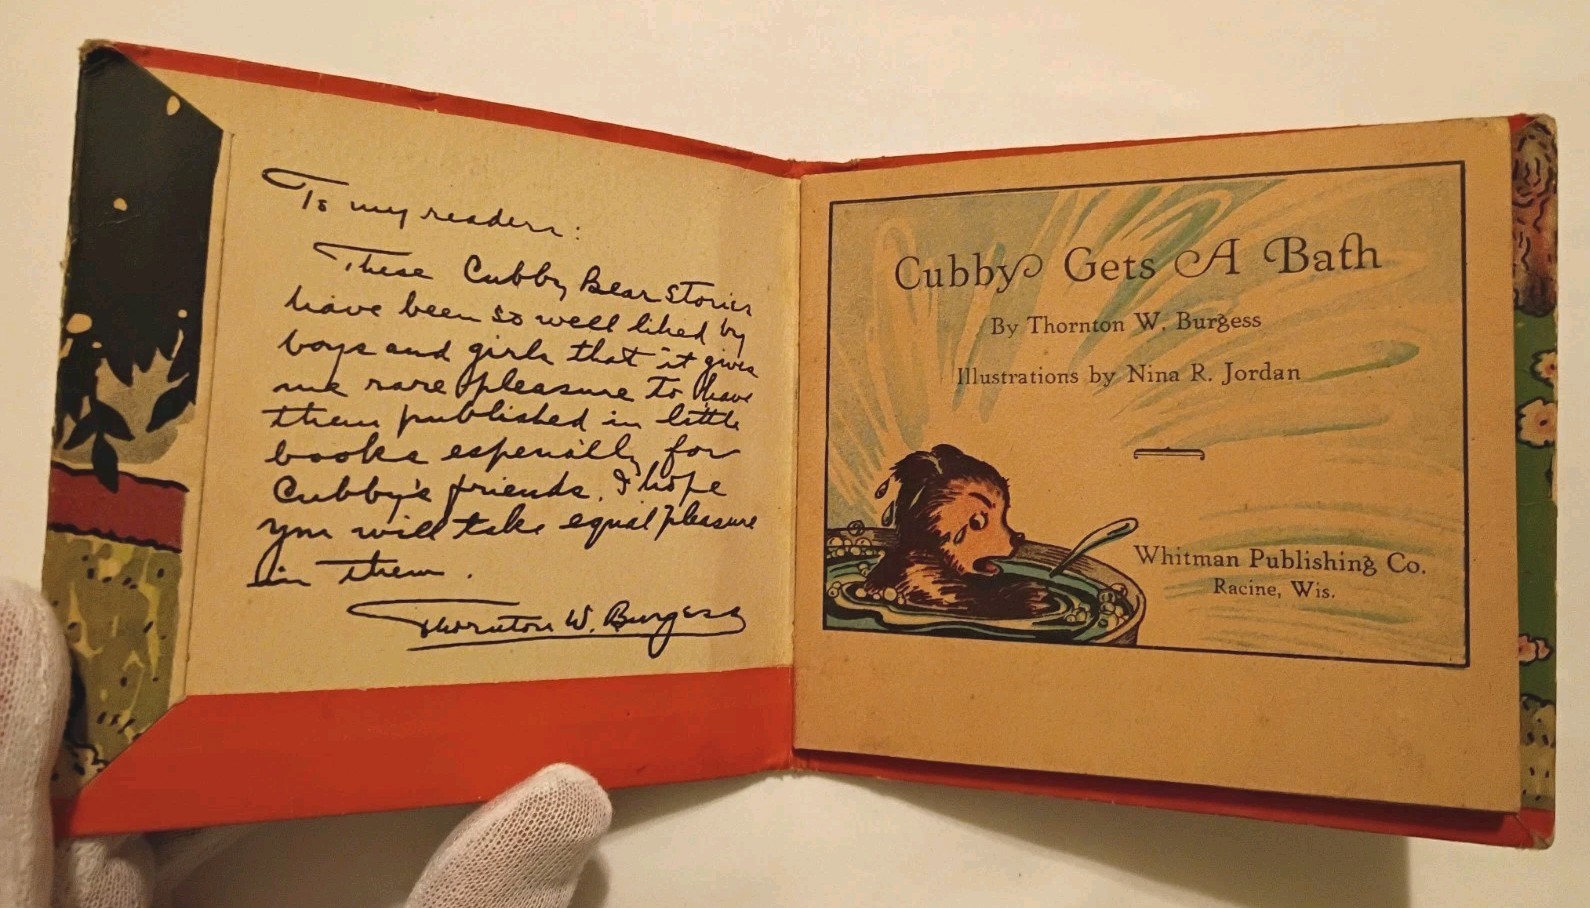 To my readers:
These Cubby Bear Stories
have been so well liked by
boys and girls that it gives
me rare pleasure to have
them published in little
books especially for
Cubby's friends. I hope
you will take equal pleasure
in them.
Thornton W. Burgess
Cubby Gets A Bath
By Thornton W. Burgess
Illustrations by Nina R. Jordan
Whitman Publishing Co.
Racine, Wis.